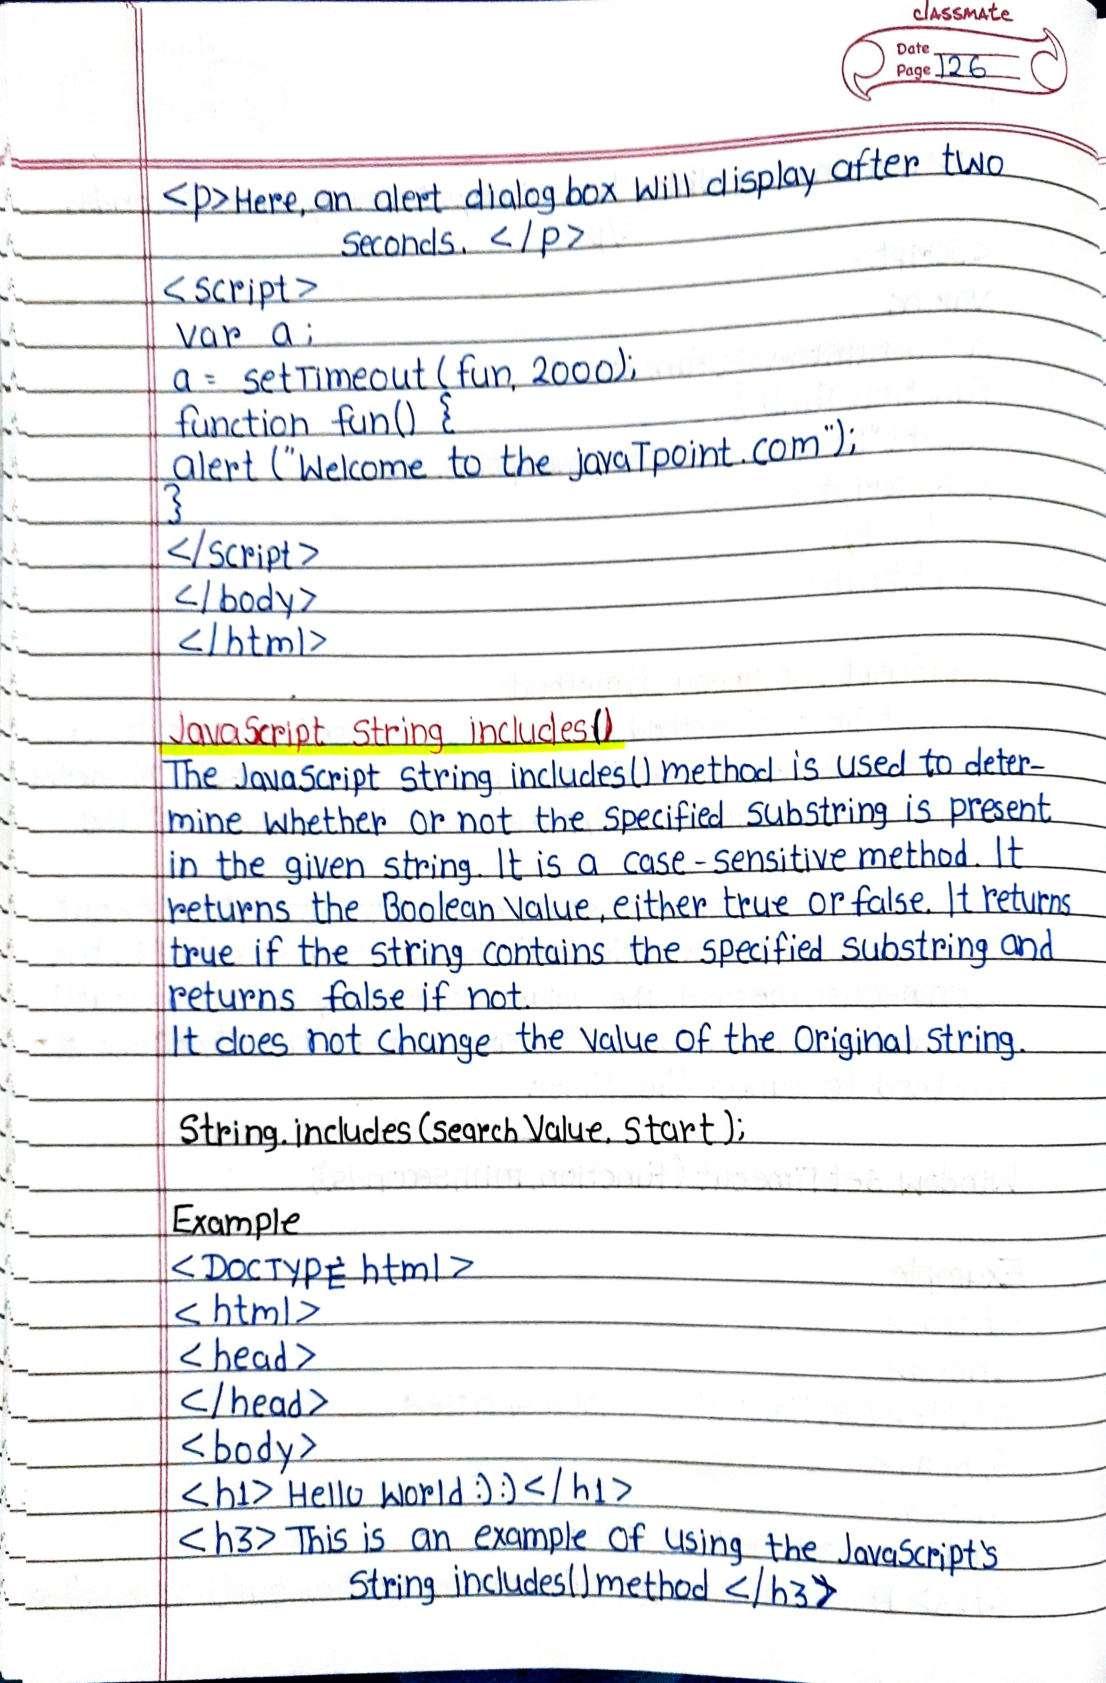 classmate
Date
Page 126
<p>Here, an alert dialog box will display after two
seconds. </p>
<script>
var a;
a = setTimeout (fun, 2000);
function fun() {
alert ("Welcome to the javaTpoint.com");
}
</script>
</body>
</html>
JavaScript String includes()
The JavaScript string includes() method is used to deter-
mine whether or not the specified substring is present
in the given string. It is a case-sensitive method. It
returns the Boolean value, either true or false. It returns
true if the string contains the specified substring and
returns false if not.
It does not change the value of the original string.
String.includes (searchValue, start);
Example
<DOCTYPE html>
<html>
<head>
</head>
<body>
<h1> Hello World :) :) </h1>
<h3> This is an example of using the JavaScript's
String includes() method </h3>